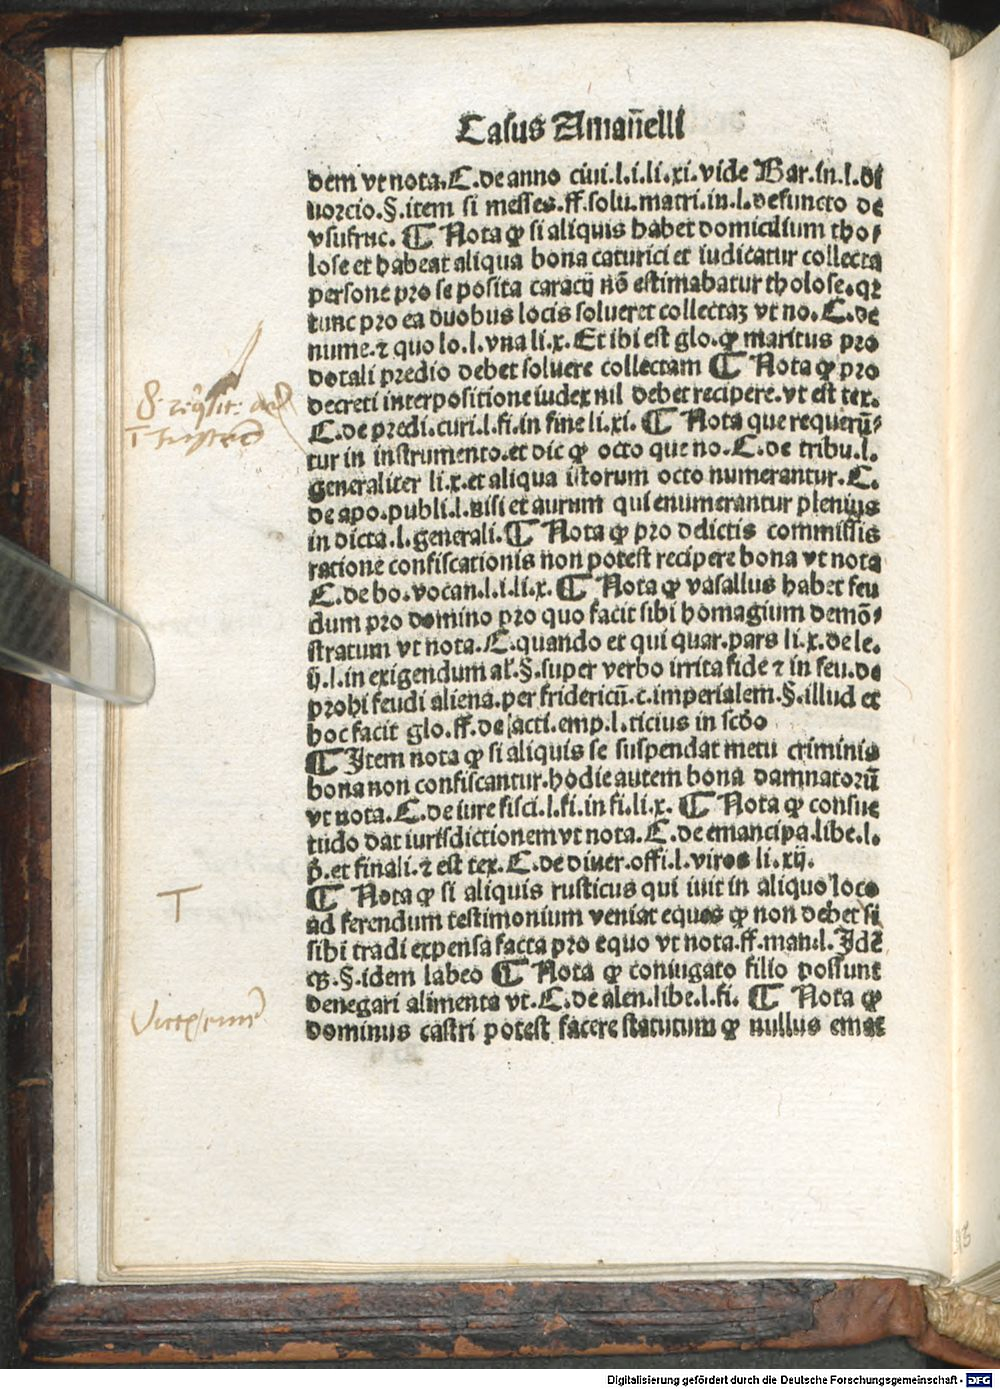 Casus Amañelli
dem vt nota.C.de anno ciui.l.i.li.xi.vide Bar.in.l.di
uorcio.§.item si messes.ff.solu.matri.in.l.defuncto de
vsufruc. ¶ Nota ꝙ si aliquis habet domicilium tho⸗
lose et habeat aliqua bona caturici et iudicatur collecta
persone pro se posita caracij nõ estimabatur tholose.qꝛ
tunc pro ea duobus locis solueret collectaʒ vt no.C.de
nume.⁊ quo lo.l.vna li.x.Et ibi est glo.ꝙ maritus pro
dotali predio debet soluere collectam ¶ Nota ꝙ pro
decreti interpositione iudex nil debet recipere.vt est tex.
C.de predi.curi.l.fi.in fine li.xi. ¶ Nota que requerũ⸗
tur in instrumento.et dic ꝙ octo que no.C.de tribu.l.
generaliter li.x.et aliqua istorum octo numerantur.C.
de apo.publi.l.nisi et aurum qui enumerantur plenius
in dicta.l.generali.¶ Nota ꝙ pro ddictis commissis
ratione confiscationis non potest recipere bona vt nota
C.de bo.vocan.l.i.li.x. ¶ Nota ꝙ vasallus habet feu
dum pro domino pro quo facit sibi homagium demõ⸗
stratum vt nota.C.quando et qui quar.pars li.x.de le.
ij.l.in exigendum al̓.§.super verbo irrita fide ⁊ in feu.de
prohi feudi aliena.per fridericũ.c.imperialem.§.illud et
hoc facit glo.ff.de acti.emp.l.ticius in scd̃o
¶ Item nota ꝙ si aliquis se suspendat metu criminis
bona non confiscantur.hodie autem bona damnatorũ
vt nota.C.de iure fisci.l.fi.in fi.li.x. ¶ Nota ꝙ consue
tudo dat iurisdictionem vt nota.C.de emancipa.libe.l.
p̃.et finali.⁊ est tex.C.de diuer.offi.l.viros li.xij.
¶ Nota ꝙ si aliquis rusticus qui iuit in aliquo loco
ad ferendum testimonium veniat eques ꝙ non debet si
sibi tradi expensa facta pro equo vt nota.ff.man.l.Idẽ
qȝ.§.idem labeo ¶ Nota ꝙ coniugato filio possunt
denegari alimenta vt.C.de alen.libe.l.fi. ¶ Nota ꝙ
dominus castri potest facere statutum ꝙ nullus emat
T
Digitalisierung gefördert durch die Deutsche Forschungsgemeinschaft - DFG